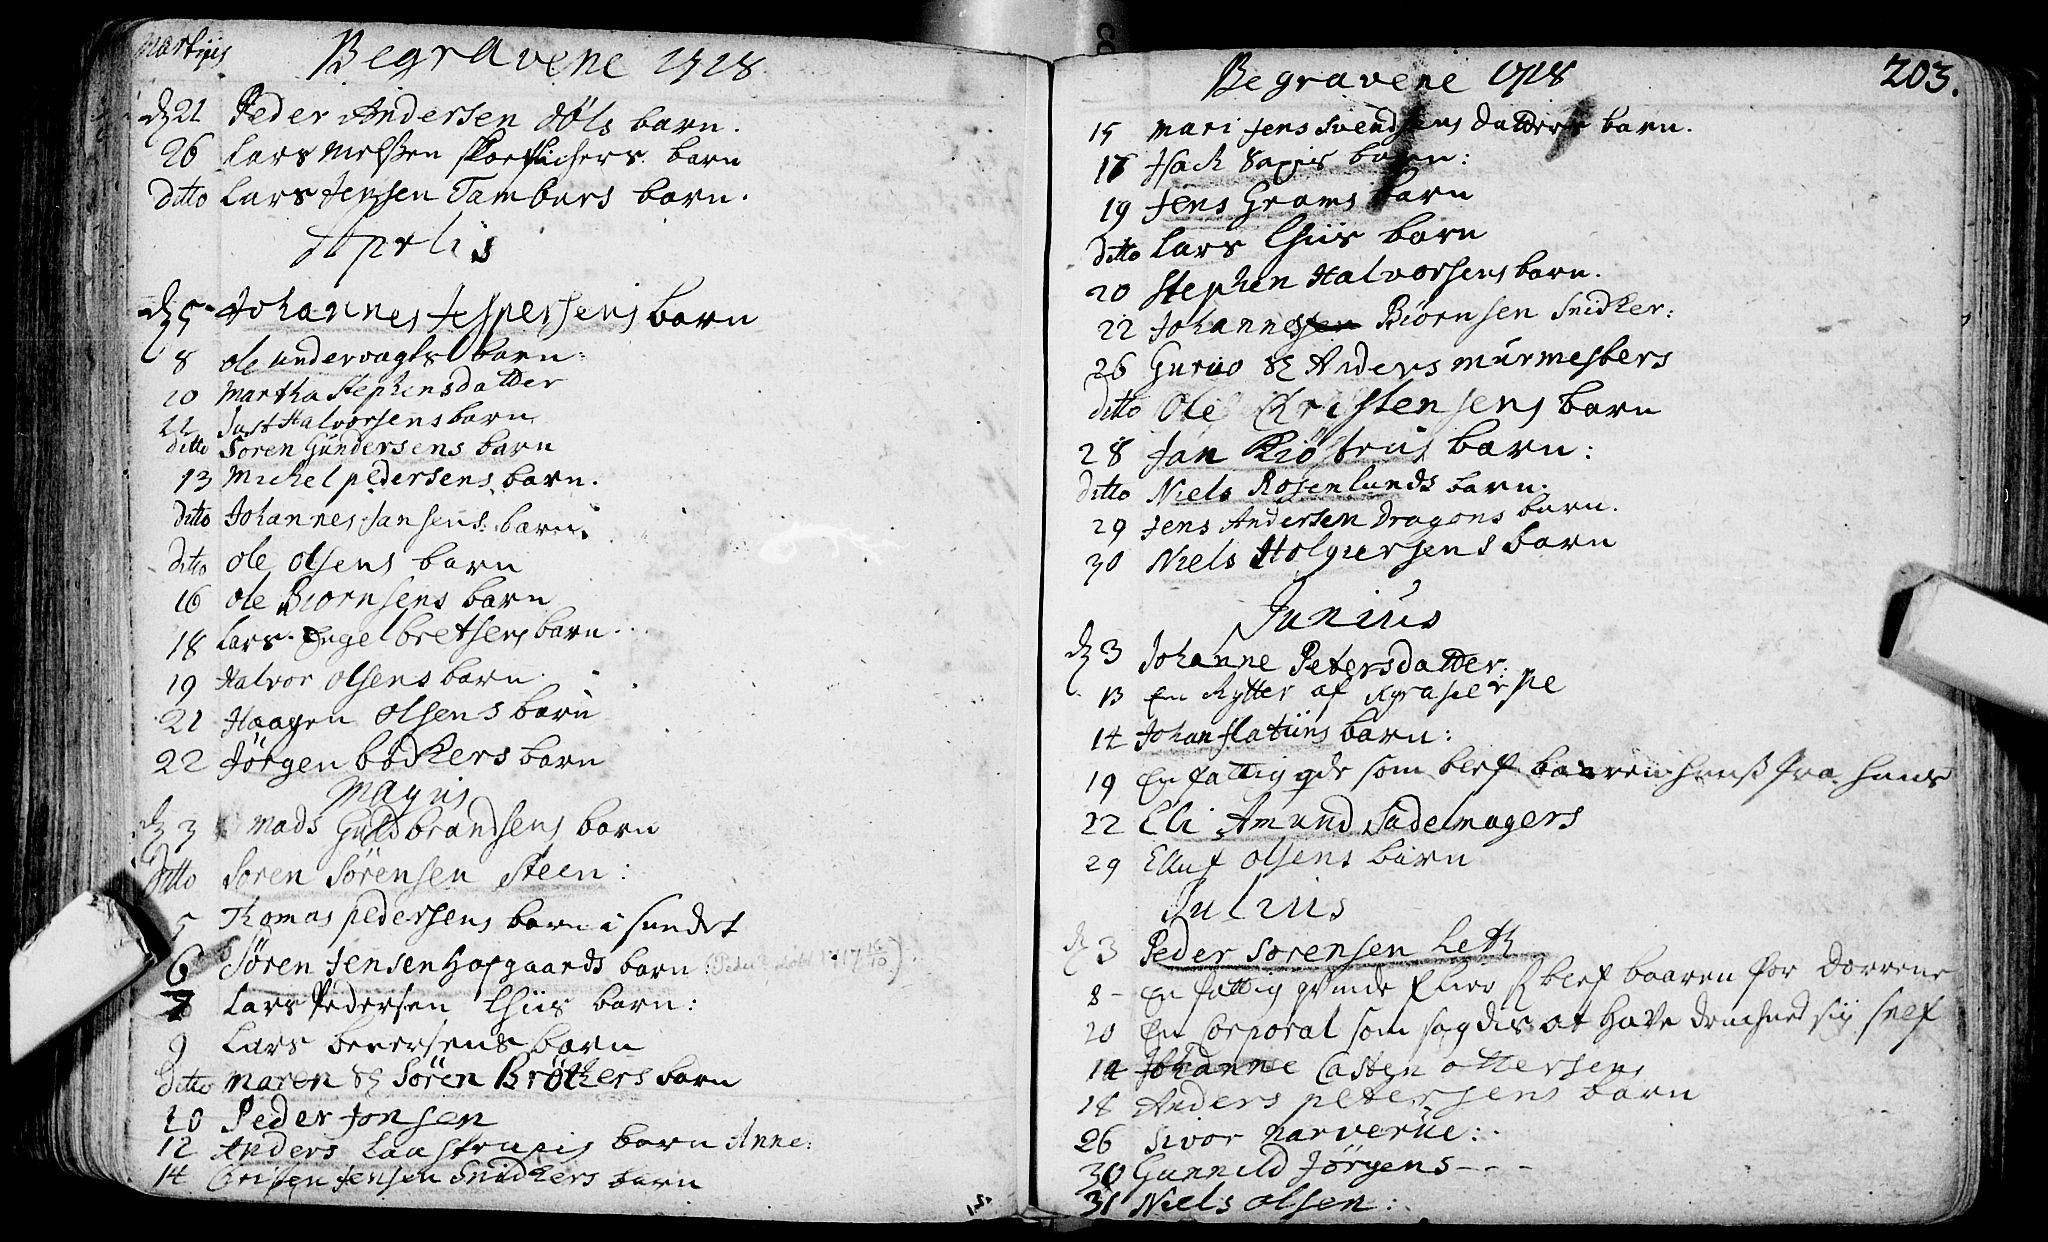 Martius
Begravene 1718
d 21 Peder Andersen döls barn.
26 Lars Nielsßen barn
Ditto Lars Jensen Tamburs barn.
Aprelis
d 5 Johannes Jespersens barn
8 ole undervagts barn:
10 Martha Stephensdatter
11 Just Halvorsens barn
ditto Soren Gundersens barn
13 Michel pedersens barn.
Ditto Johannes Jansens barn.
Ditto ole olsens barn
16 ole Biornsens barn
18 Lars Engelbretsens barn.
19 Halvor olsens barn.
21 Haagen olsens barn
22 Jörgen bödkers barn
Majus
d 3 Mads Guldbrandsens barn
Ditto Soren Sörensen Steen:
5 Thomas pedersens barn i sundet
6 Sören Jensen Hofgaards barn
8 Lars Pedersen Thiis barn:
9 Lars beversens barn
ditto Maren Sören Brökers barn
10 Peder Jonsen
12 Anders Laustrupis barn Anne:
14 Christen Jensen Snidkers barn
15.
Begravene 1718
203.
15 Mari Jens Svendsens Datters barn.
18 Hach barn:
19 Jens Grams barn
ditto Lars Thiis barn
20 Stephen Halvorsens barn.
22 Johannes Biornsen Snidker:
26 Guruo Anders murmesters
ditto Ole Christensens barn
28 Jan Kiöstens barn:
ditto Niels Rosenlunds barn.
29 Jens Andersen Dragons barn.
30 Niels Holgiersens barn
Junius
d 3 Johanne Petersdatter:
13 En Rytter af
14 Johan flatuns barn:
19 En fattig som blef baaren fra huus
22 Eli Amund Sadelmagers
29 Elluf olsens barn
Julius
d 3 Peder Sorensen Leth
8 - En fattig qvinde blef baaren for Dorrene
10 En Corporal som sagdis at Have self
14 Johanne Casten ottersens
18 Anders petersens barn
26 Sivor narverüe:
30 Gunnild Jörgens - - -
31 Niels olsen: